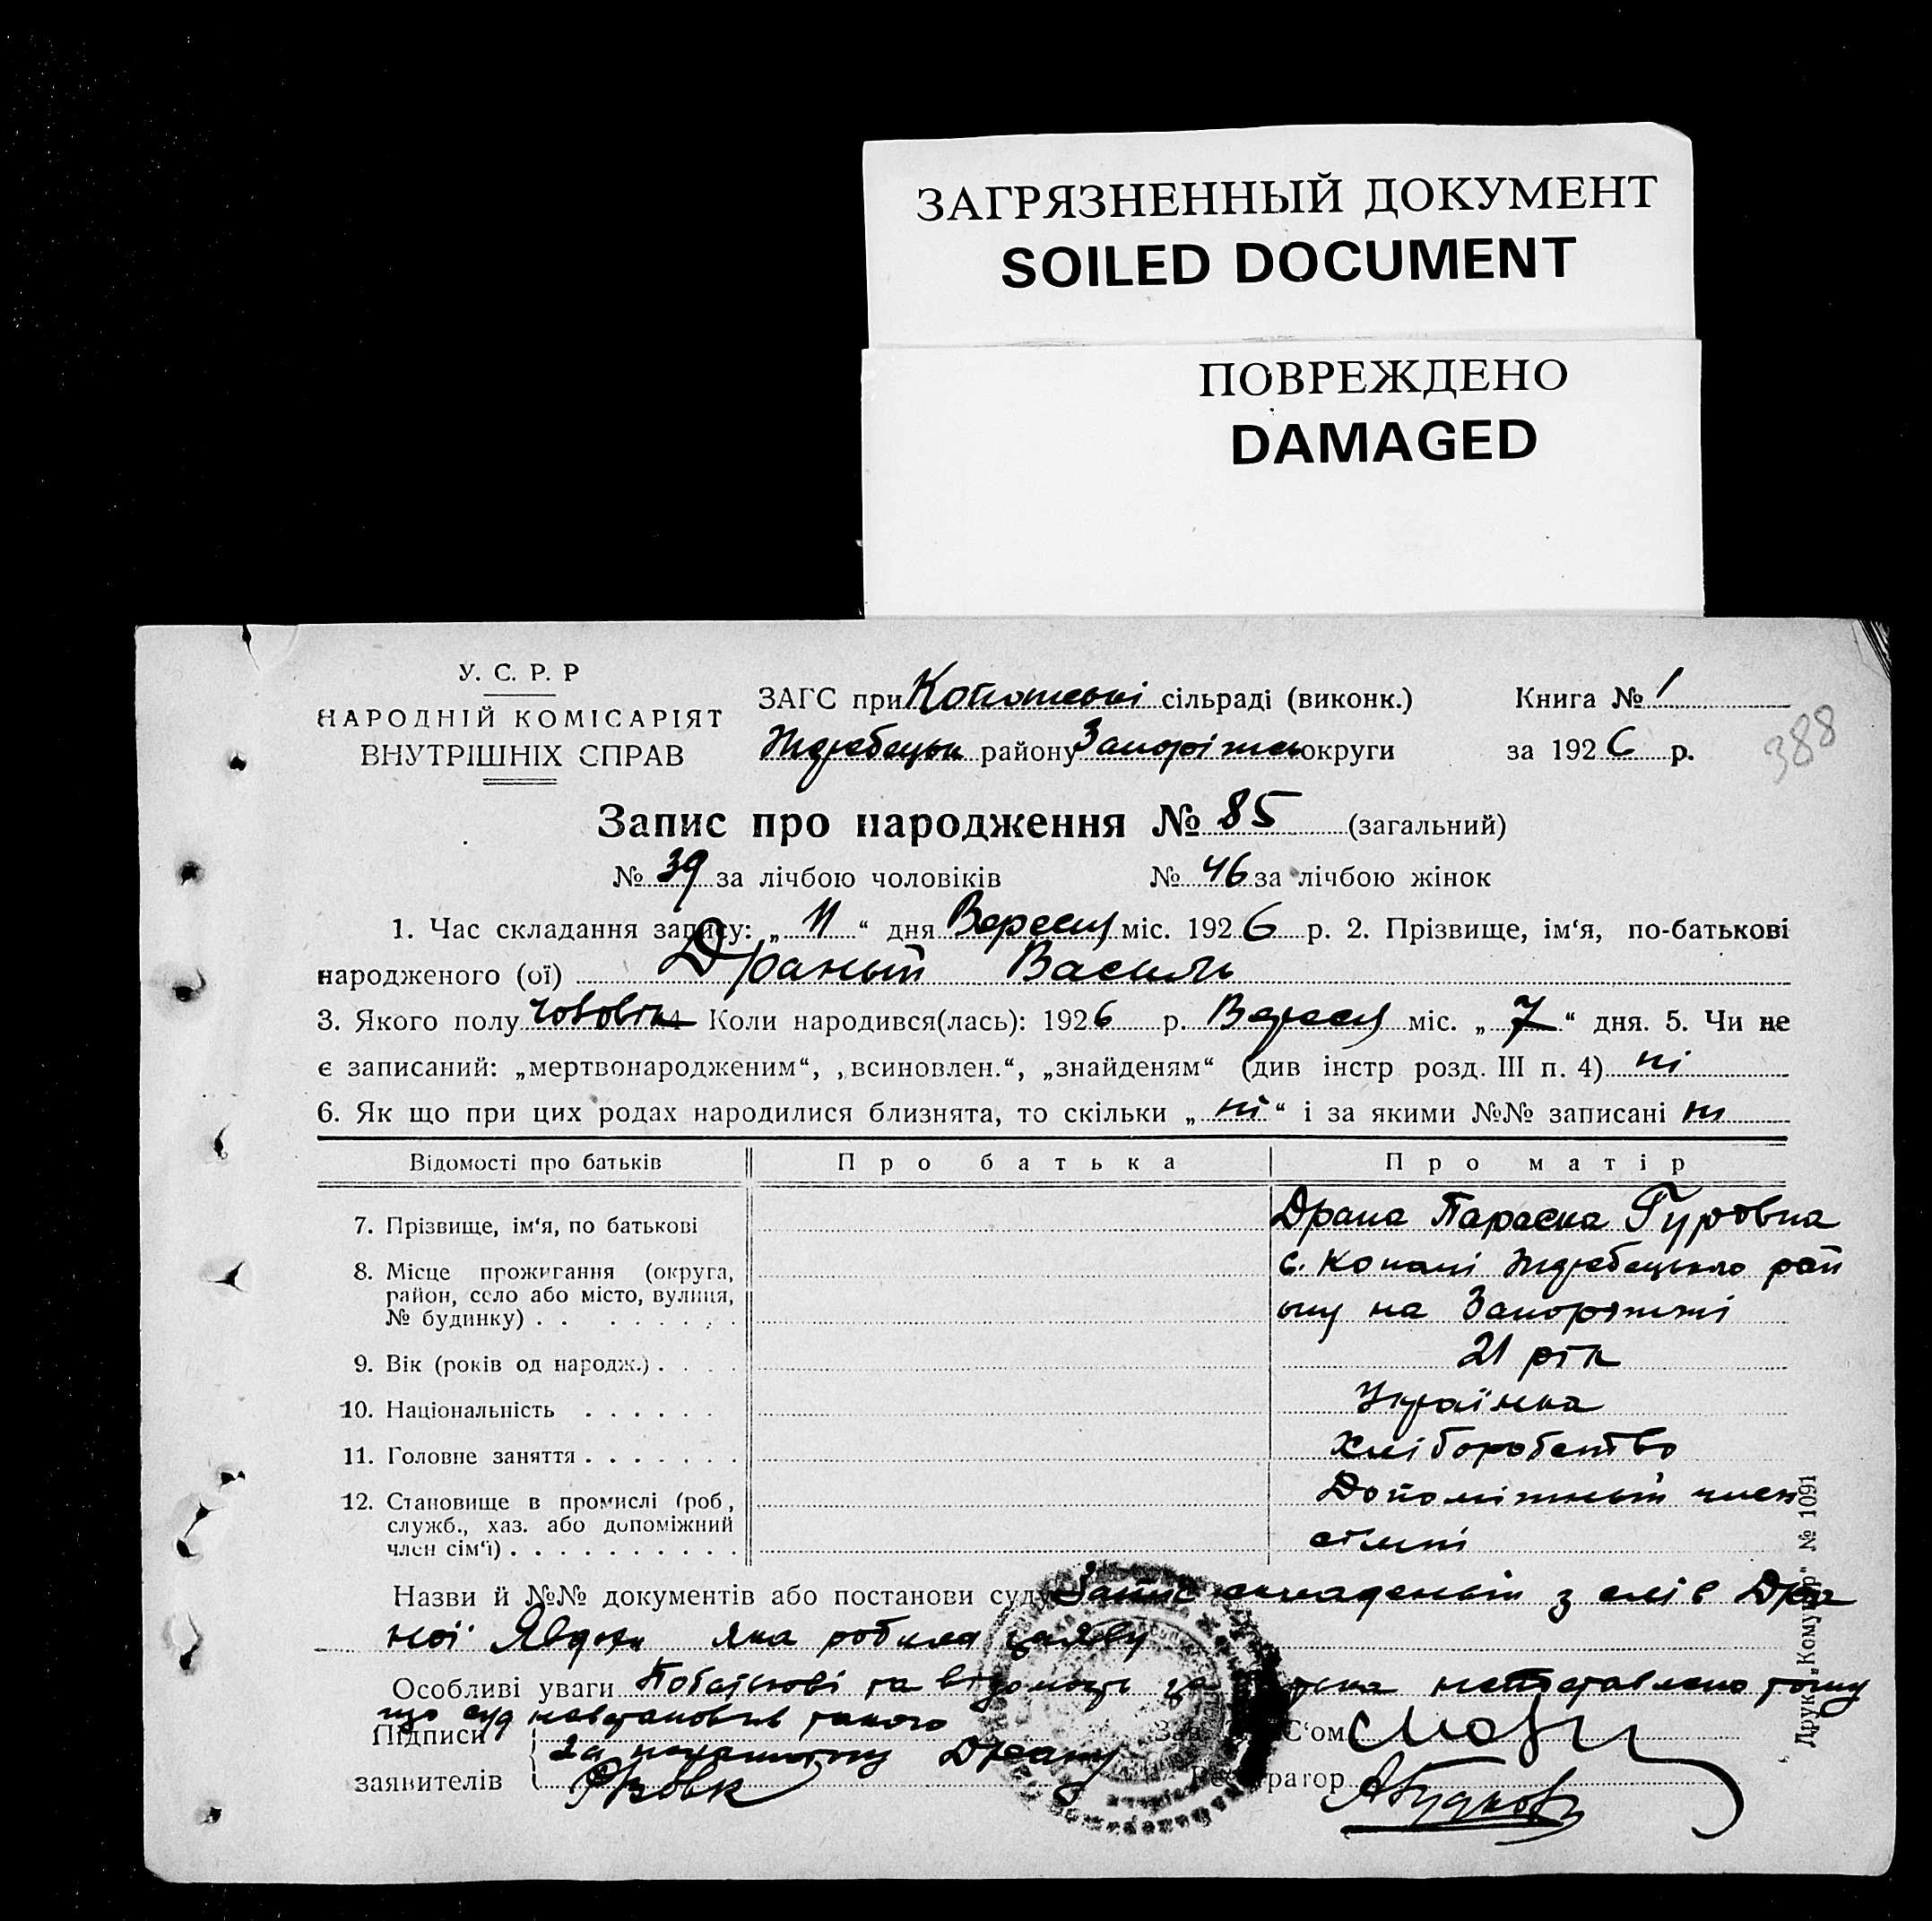 ЗАГРЯЗНЕННЫЙ ДОКУМЕНТ
SOILED DOCUMENT
ПОВРЕЖДЕНО
DAMAGED
У. С. Р. Р
НАРОДНІЙ КОМІСАРІЯТ
ВНУТРІШНІХ СПРАВ
ЗАГС при сільраді (виконк.)
району округи
Книга № 1
за 1926 р.
388
Запис про народження № 85 (загальний)
№ 39 за лічбою чоловіків № 46 за лічбою жінок
1. Час складання запису: „ 11 “ дня Вересня міс. 1926 р. 2. Прізвище, ім‘я, по-батькові
народженого (ої) Драный Василь
3. Якого полу чоловік 4 Коли народився(лась): 1926 р. Вересня міс. „ 7 “ дня. 5. Чи не
є записаний: „мертвонародженим“, „всиновлен.“, „знайденям“ (див інстр розд. III п. 4) ні
6. Як що при цих родах народилися близнята, то скільки „ ні “ і за якими №№ записані ні
Відомості про батьків Про батька Про матір
7. Прізвище, ім‘я, по батькові Драна Параска Гуровна
8. Місце прожигання (округа, с. Копані Ждребецького рай
район, село або місто, вулиця,
№ будинку) . . . . . . . . ону на Запоріжжі
9. Вік (років од народж.) . . . . 21 рік
10. Національність . . . . . . Українка
11. Головне заняття . . . . . . . Хліборобство
12. Становище в промислі (роб, Допоміжный член
служб., хаз. або допоміжний
член сім‘ї) . . . . . . . . . . сімьї
Назви й №№ документів або постанови суду Запис складеный з слів Дра
ної Явдохи яка робила заяву
Особливі уваги Побатькові та відомость за батька непоставлено тому
що суд невстановив такого
Підписи За неграмотну Драну
заявителів
Зав. С‘ом
Регістратор
Друк. „Комунар“ № 1091